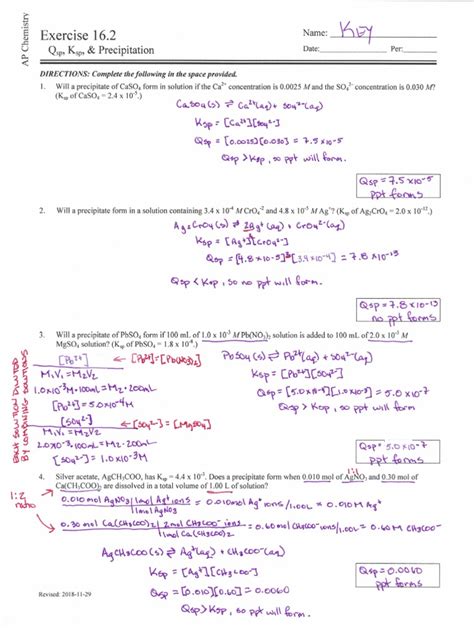 AP Chemistry
Exercise 16.2
Qsp, Ksp, & Precipitation
Name: KEY
Date: Per:
DIRECTIONS: Complete the following in the space provided.
1. Will a precipitate of CaSO₄ form in solution if the Ca²⁺ concentration is 0.0025 M and the SO₄²⁻ concentration is 0.030 M?
(Ksp of CaSO₄ = 2.4 x 10⁻⁵.)
CaSO₄(s) ⇌ Ca²⁺(aq) + SO₄²⁻(aq)
Ksp = [Ca²⁺][SO₄²⁻]
Qsp = [0.0025][0.030] = 7.5 x 10⁻⁵
Qsp > Ksp, so ppt will form.
Qsp = 7.5 x 10⁻⁵
ppt forms
2. Will a precipitate form in a solution containing 3.4 x 10⁻⁴ M CrO₄⁻² and 4.8 x 10⁻⁵ M Ag⁺? (Ksp of Ag₂CrO₄ = 2.0 x 10⁻¹².)
Ag₂CrO₄(s) ⇌ 2Ag⁺(aq) + CrO₄²⁻(aq)
Ksp = [Ag⁺]²[CrO₄²⁻]
Qsp = [4.8 x 10⁻⁵]²[3.4 x 10⁻⁴] = 7.8 x 10⁻¹³
Qsp < Ksp, so no ppt will form.
Qsp = 7.8 x 10⁻¹³
no ppt forms
3. Will a precipitate of PbSO₄ form if 100 mL of 1.0 x 10⁻³ M Pb(NO₃)₂ solution is added to 100 mL of 2.0 x 10⁻³ M
MgSO₄ solution? (Ksp of PbSO₄ = 1.8 x 10⁻⁸.)
EACH SOLUTION DILUTED
BY COMBINING SOLUTIONS
[Pb²⁺] ← [Pb²⁺] = [Pb(NO₃)₂]
M₁V₁ = M₂V₂
1.0x10⁻³M·100mL = M₂·200mL
[Pb²⁺] = 5.0x10⁻⁴M
[SO₄²⁻] ← [SO₄²⁻] = [MgSO₄]
M₁V₁ = M₂V₂
2.0x10⁻³·100mL = M₂·200mL
[SO₄²⁻] = 1.0x10⁻³M
PbSO₄(s) ⇌ Pb²⁺(aq) + SO₄²⁻(aq)
Ksp = [Pb²⁺][SO₄²⁻]
Qsp = [5.0x10⁻⁴][1.0x10⁻³] = 5.0x10⁻⁷
Qsp > Ksp, so ppt will form.
Qsp = 5.0x10⁻⁷
ppt forms
1:1
4. Silver acetate, AgCH₃COO, has Ksp = 4.4 x 10⁻³. Does a precipitate form when 0.010 mol of AgNO₃ and 0.30 mol of
Ca(CH₃COO)₂ are dissolved in a total volume of 1.00 L of solution?
1:2
ratio
0.010 mol AgNO₃ | 1 mol Ag⁺ ions / 1 mol AgNO₃ = 0.010 mol Ag⁺ ions/1.00L = 0.010 M Ag⁺
0.30 mol Ca(CH₃COO)₂ | 2 mol CH₃COO⁻ ions = 0.60 mol CH₃COO⁻ ions/1.00L = 0.60 M CH₃COO⁻
1 mol Ca(CH₃COO)₂
AgCH₃COO(s) ⇌ Ag⁺(aq) + CH₃COO⁻(aq)
Ksp = [Ag⁺][CH₃COO⁻]
Qsp = [0.010][0.60] = 0.0060
Qsp > Ksp, so ppt will form.
Qsp = 0.0060
ppt forms
Revised: 2018-11-29